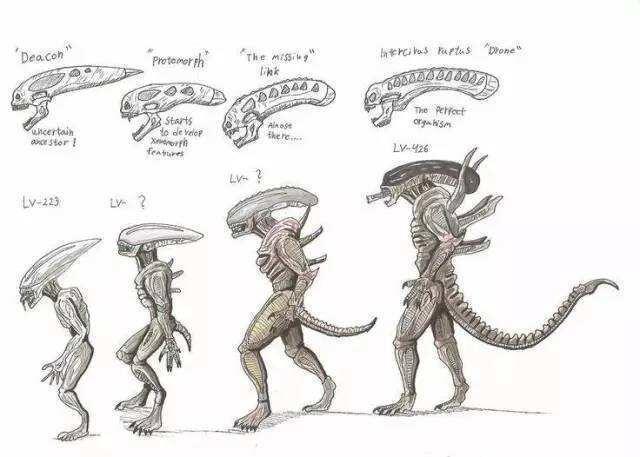 "Deacon"
uncertain
ancestor?
LV-223
"Protomorph"
starts
to develop
xenomorph
features
LV- ?
"The missing"
link
Almost
there....
LV- ?
"Drone"
The Perfect
organism
LV-426